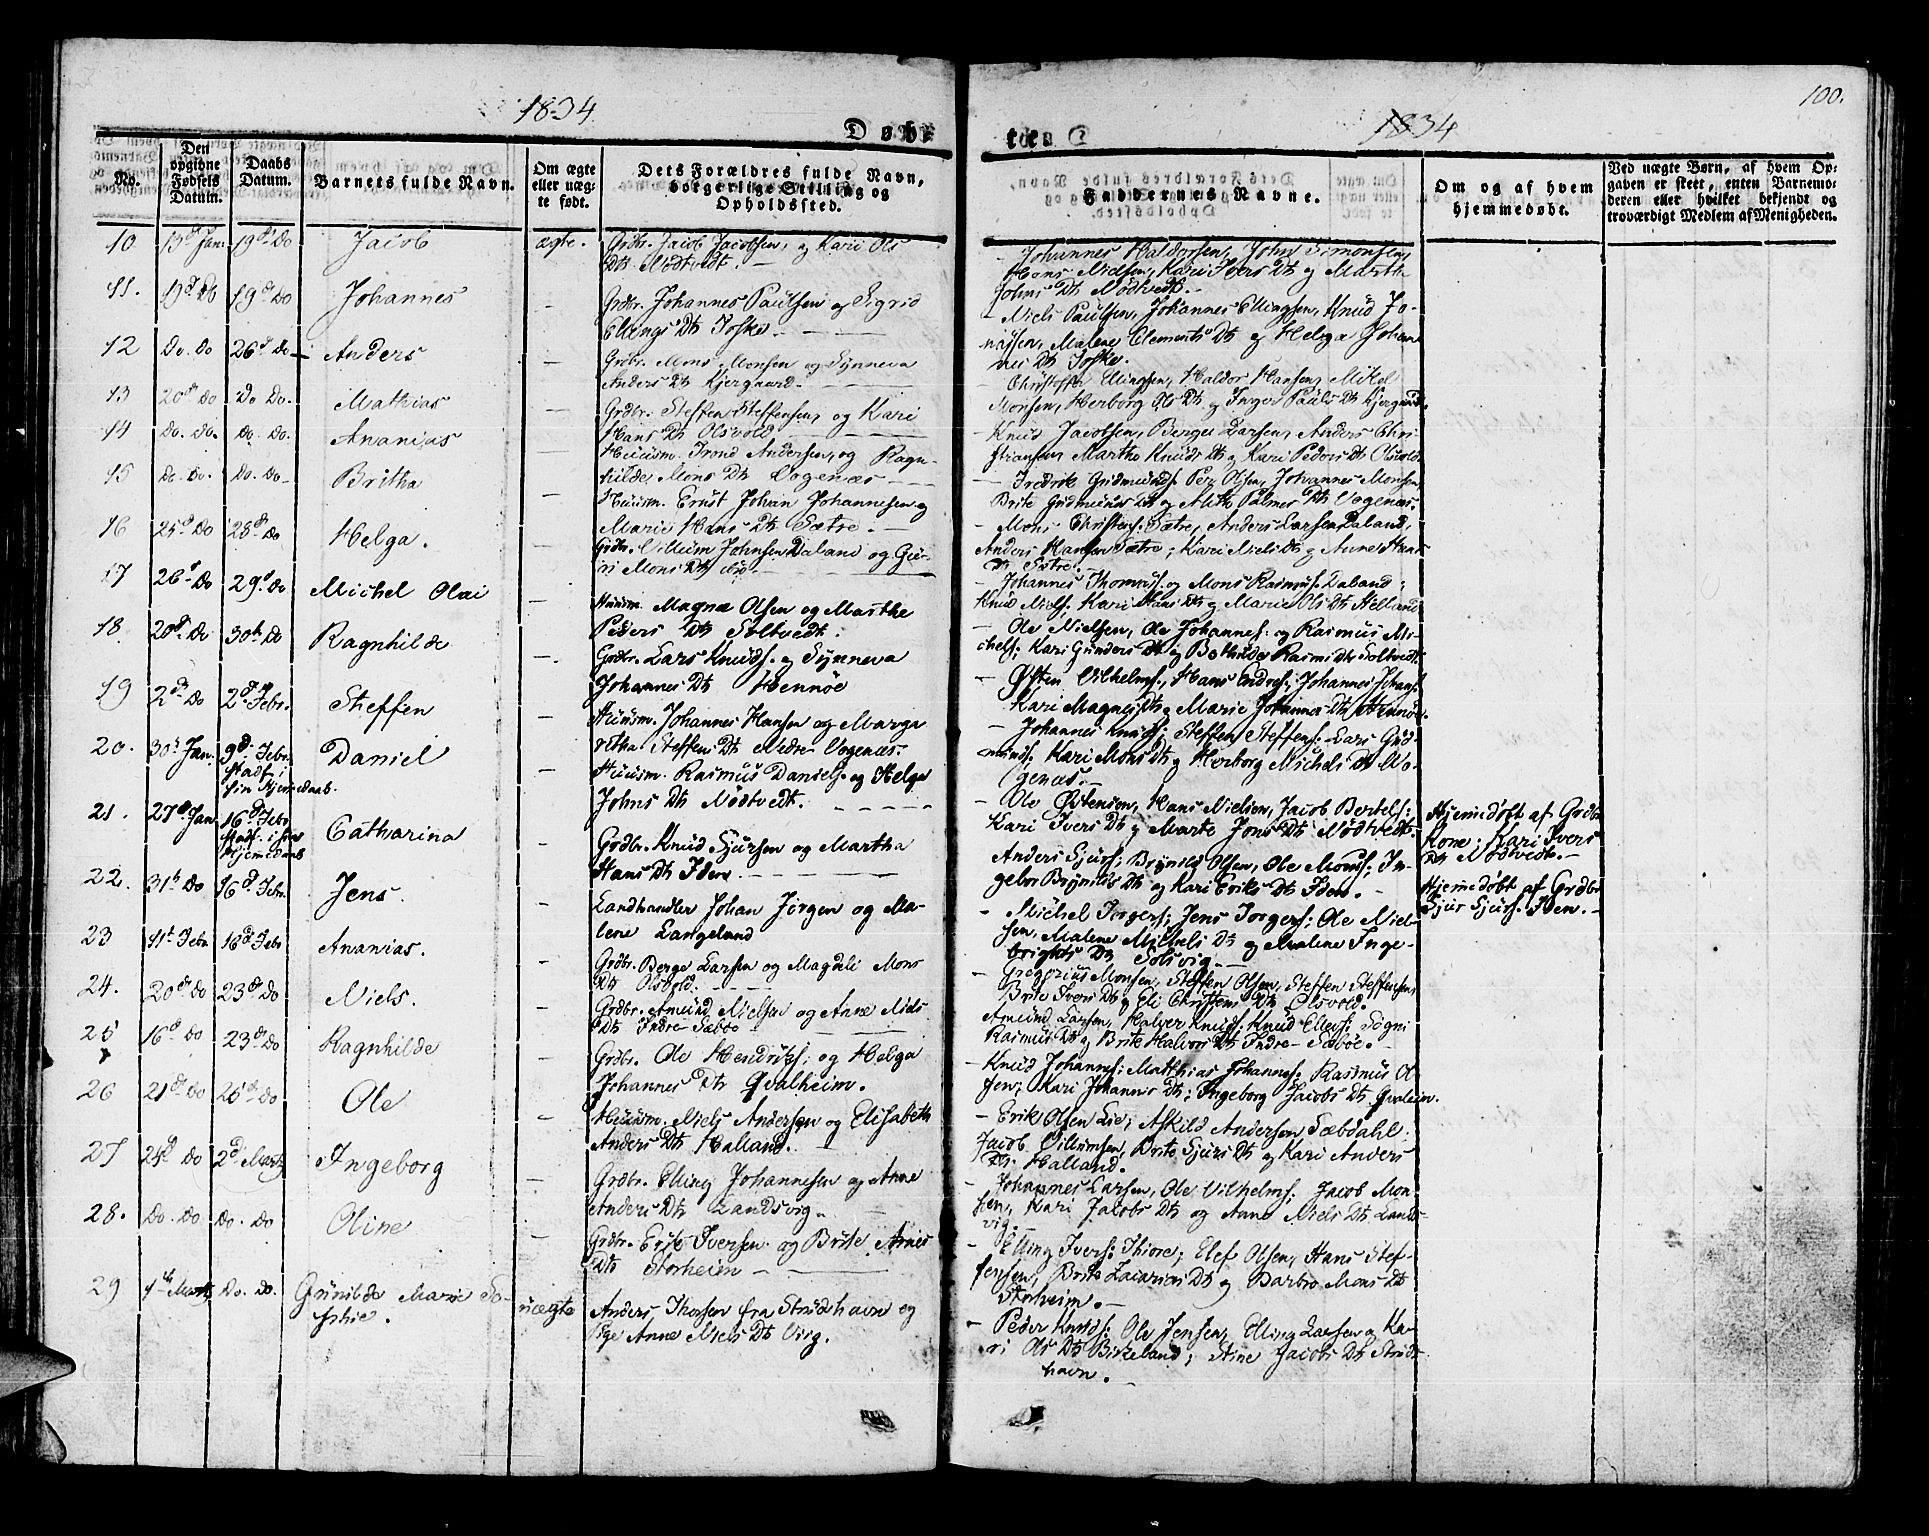 1834.
Døb-
te.
1834
100.
No.
Den opgivne Fødsels Datum.
Daabs Datum.
Barnets fulde Navn.
Om ægte eller uæg- te født.
Dets Forældres fulde Navn, borgerlige Stilling og Opholdssted.
Faddernes Navne.
Om og af hvem hjemmedøbt.
Ved uægte Børn, af hvem Op- gaven er skeet, enten Barnemo- deren eller hvilket bekjendt og troværdigt Medlem af Menigheden.
10. 13d Jan. 19d Do Jacob ægte. Grdbr. Jacob Jacobsen, og Kari Ols
Dtr Nödtvedt. -
- Johannes Haldorsen, John Simonsen,
Hans Nielsen, Kari Ivers Dtr og Marth
Johns Dtr Nödtvedt. -
11. 19d Do Johannes - Grdbr. Johannes Paulsen og Sigrid
Ellings Dtr Toske. -
- Niels Paulsen, Johannes Ellingsen, Knud Jo-
nassen, Malene Clements Dtr og Helga Johan
nes Dtr Toske.
12 Do. Do 26d Do Anders - Grdbr. Mons Monsen og Synneva
Anders Dtr Kjergaard. -
- Christoffer Ellingsen, Haldor Hansen, Mikel
Monsen, Herborg Ols Dtr og Inger Pauls Dtr Kjergaard.
13 20de Do Do Do. Mathias - Grdbr. Steffen Steffensen, og Kari
Hans Dtr Olsvold -
- Knud Jacobsen, Berge Larsen, Anders Chri-
stiansen, Martha Knuds Dtr og Kari Peders Dtr Olsvold
14 Do. Do. Do. Do. Ananias - Huusm. Trond Andersen, og Ragn-
hilde Mons Dtr Vogenæs -
- Fredrik Gudmunds. Per Olsen, Johannes Monsen
Brite Gudmunds Dtr og Palmer Dtr Vogenæs.
15 Do. Do. Do. Do. Britha - Huusm. Ernst Johan Johannesen og
Marie Hans Dtr Sætre. -
- Mons Christens: Sætre, Anders Larsen Daland,
Anders Hansen Sætre; Kari Niels Dtr og Anne Hans
Dtr Sætre. -
16 25d Do 28d Do Helga. - Grdbr. Villum Johnsen Daland og Gu-
ri Mons Dtr ibid. -
- Johannes Thomas. og Mons Rasmus. Daland;
Knud Niels. Kari Hans Dtr og Marie Ols Dtr Helland
17 26d Do 29d Do Michel Olai - Huusm. Magne Olsen og Marthe
Peders Dtr Soltvedt.
- Ole Nielsen, Ole Johannes: og Rasmus Mi-
chels: Kari Gunders Dtr og Bothilde Rasmus Dtr Soltvedt
18. 20d Do 30te Do Ragnhilde - Grdbr. Lars Knuds. og Synneva
Johannes Dtr Hennöe
- Østen Vilhelms., Hans Endres; Johannes Johans.
Kari Magnes Dtr og Marie Johannes Dtr Hennöe.
19 2d Do 2d Febr. Steffen - Huusm. Johannes Hansen og Marga
retha Steffens Dtr Nedre Vogenæs.
- Johannes Knuds; Steffen Steffens: Lars Gud-
munds, Kari Mons Dtr og Herborg Michels Dtr Vo-
genæs. -
20. 30te Jan. 9d Febr. Stadf: i sin Hjemmedaab. Daniel - Huusm. Rasmus Daniels. og Helga
Johns Dtr Nödtvedt. -
- Ole Østensen, Hans Nielsen, Jacob Bertels;
Kari Ivers Dtr og Marte Jons Dtr Nödtvedt.
Hjemedöbt af Grdbr.
Kone; Kari Ivers
Dtr Nödtvedt. -
21. 27d Jan. 16d Febr. Stadf. i sin Hjemedaab Catharina - Grdbr. Knud Sjursen og Martha
Hans Dtr Iden. -
Anders Sjurs; Brynild Olsen, Ole Mons; In-
gebor Brynilds Dtr og Kari Eriks Dtr Iden. -
Hjemedöbt af Grdbr
Sjur Sjurs. Iden. -
22. 31te Do 16d Febr. Jens. - Landhandler Johan Jörgen og Ma-
lene Langeland
- Michel Torgers; Jens Torgers; Ole Niel-
sen, Malene Michels Dtr og Malene Inge-
brigts Dtr Solsvig. -
23 11te Febr. 16d Febr Ananias. - Grdbr. Berge Larsen og Magdeli Mons
Dtr Olsvold. -
- Gregorius Monsen, Steffen Olsen, Steffen Steffensen
Brite Ivers Dtr og Eli Christens Dtr Olsvold.
24. 20de Do 23de Do Niels. - Grdbr. Amund Nielsen og Anne Niels
Dtr Indre Sæbö -
Amund Larsen, Halver Knuds: Knud Ellers; Sögni
Rasmus Dtr og Brite Halvors Dtr Indre Sæböe. -
25 16d Do 23de Do Ragnhilde - Grdbr. Ole Hendriks: og Helga
Johannes Dtr Qvalheim.
- Knud Johannes: Matthias Johannes: Rasmus Ol-
sen; Kari Johannes Dtr; Ingeborg Jacobs Dtr Qvaleim.
26 21de Do 25de Do Ole - Huusm. Niels Andersen og Elisabeth
Anders Dtr Halland.
- Erik Olsen Lie; Askild Andersen Sæbdahl;
Jacob Villumsen, Brite Sjurs Dtr og Kari Anders
Dtr. Halland.
27 24d Do 2d Martz Ingeborg - Grdbr. Elling Johannesen og Anne
Anders Dtr Landsvig.
- Johannes Larsen, Ole Vilhelms; Jacob Mon-
sen, Kari Jacobs Dtr og Anne Niels Dtr Lands-
vig. -
28. Do. Do Do. Do Oline - Grdbr. Erik Iversen og Brite Arnes
Dtr Storheim -
- Elling Ivers: Thiore; Elef Olsen, Hans Stef-
fensen, Brite Zacarias Dtr og Barbro Mons Dtr
Storheim. -
29 1te Martz Do. Do. Gunilde Marie So-
phie. uægte Anders Thorsen fra Strudshavn og
Pige Anne Niels Dtr Virg.
- Peder Knuds: Ole Jensen, Elling Larsen og Ka-
ri Ols Dtr Birkeland; Stine Jacobs Dtr Struds
havn.